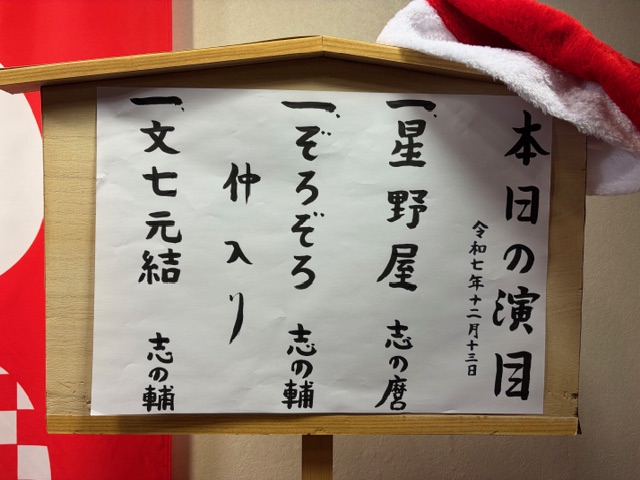 本日の演目
令和七年十二月十三日
一、星野屋 志の麿
一、ぞろぞろ 志の輔
仲入り
一、文七元結 志の輔